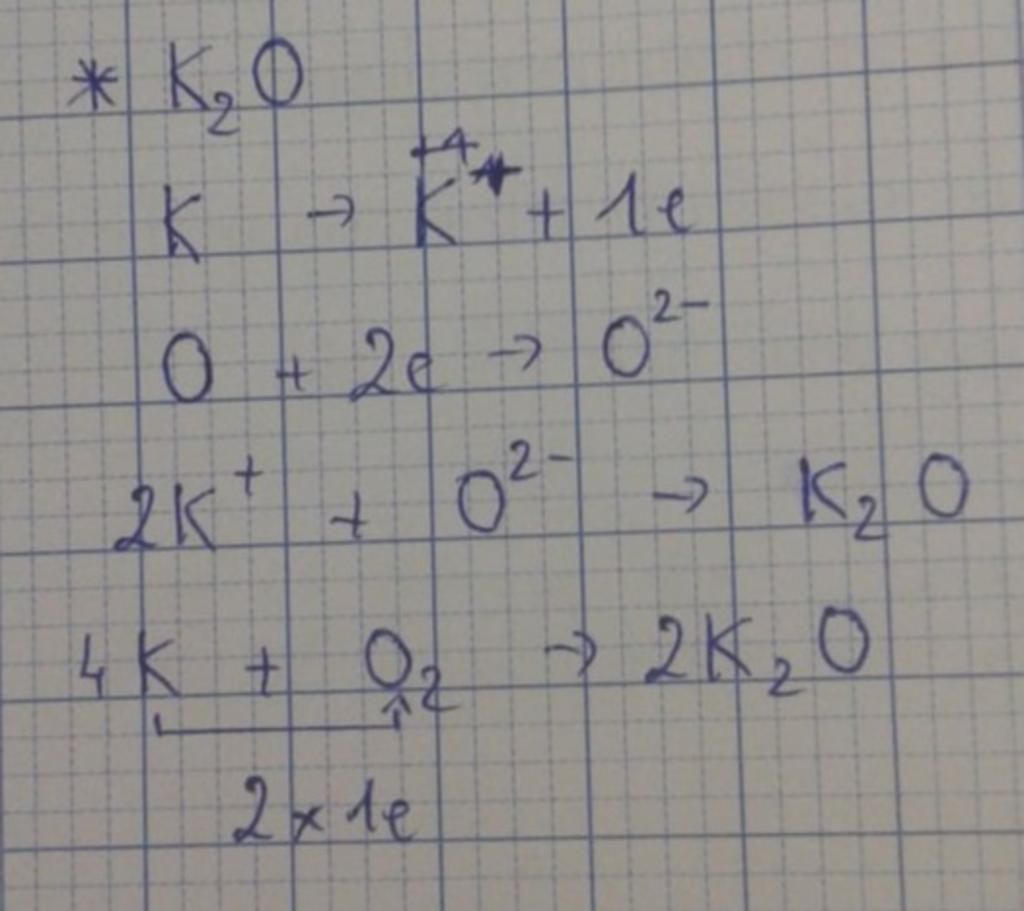 * K₂O
K → K⁺ + 1e
O + 2e → O²⁻
2K⁺ + O²⁻ → K₂O
4K + O₂ → 2K₂O
2 x 1e